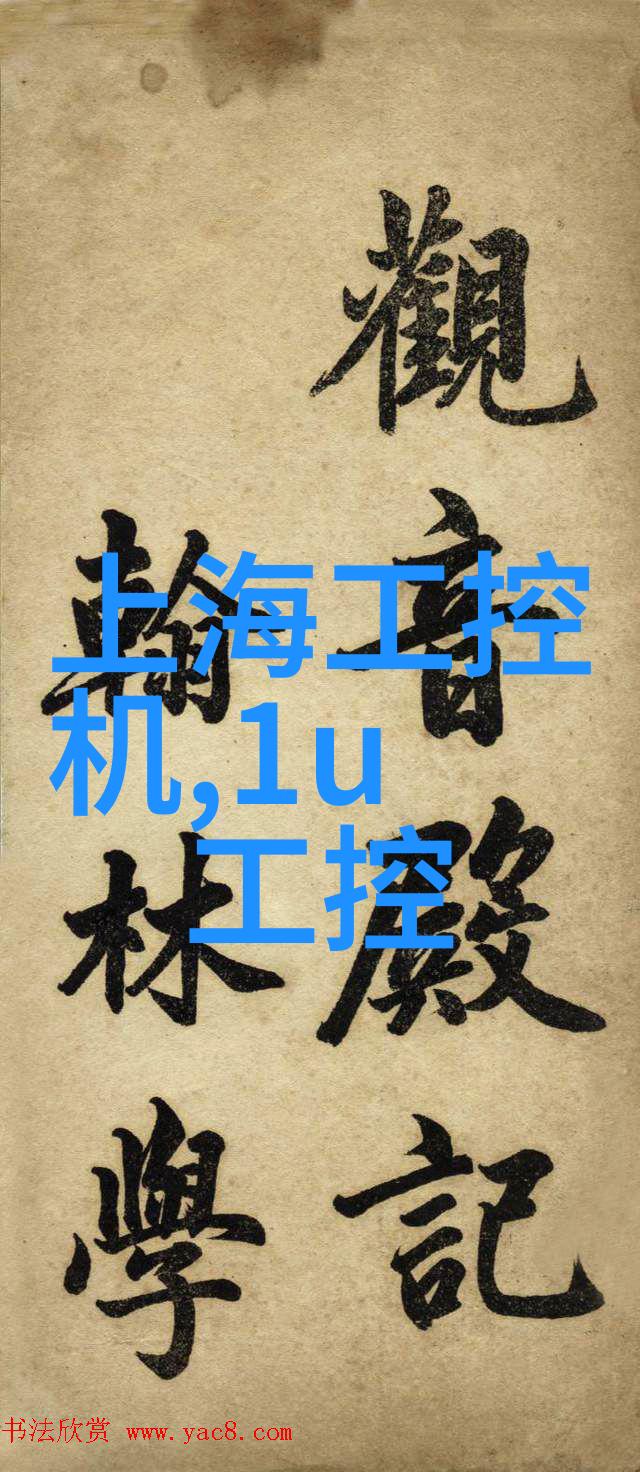 觀音殿記
翰林學
上海工控
机,1u
工控
书法欣赏 www.yac8.com